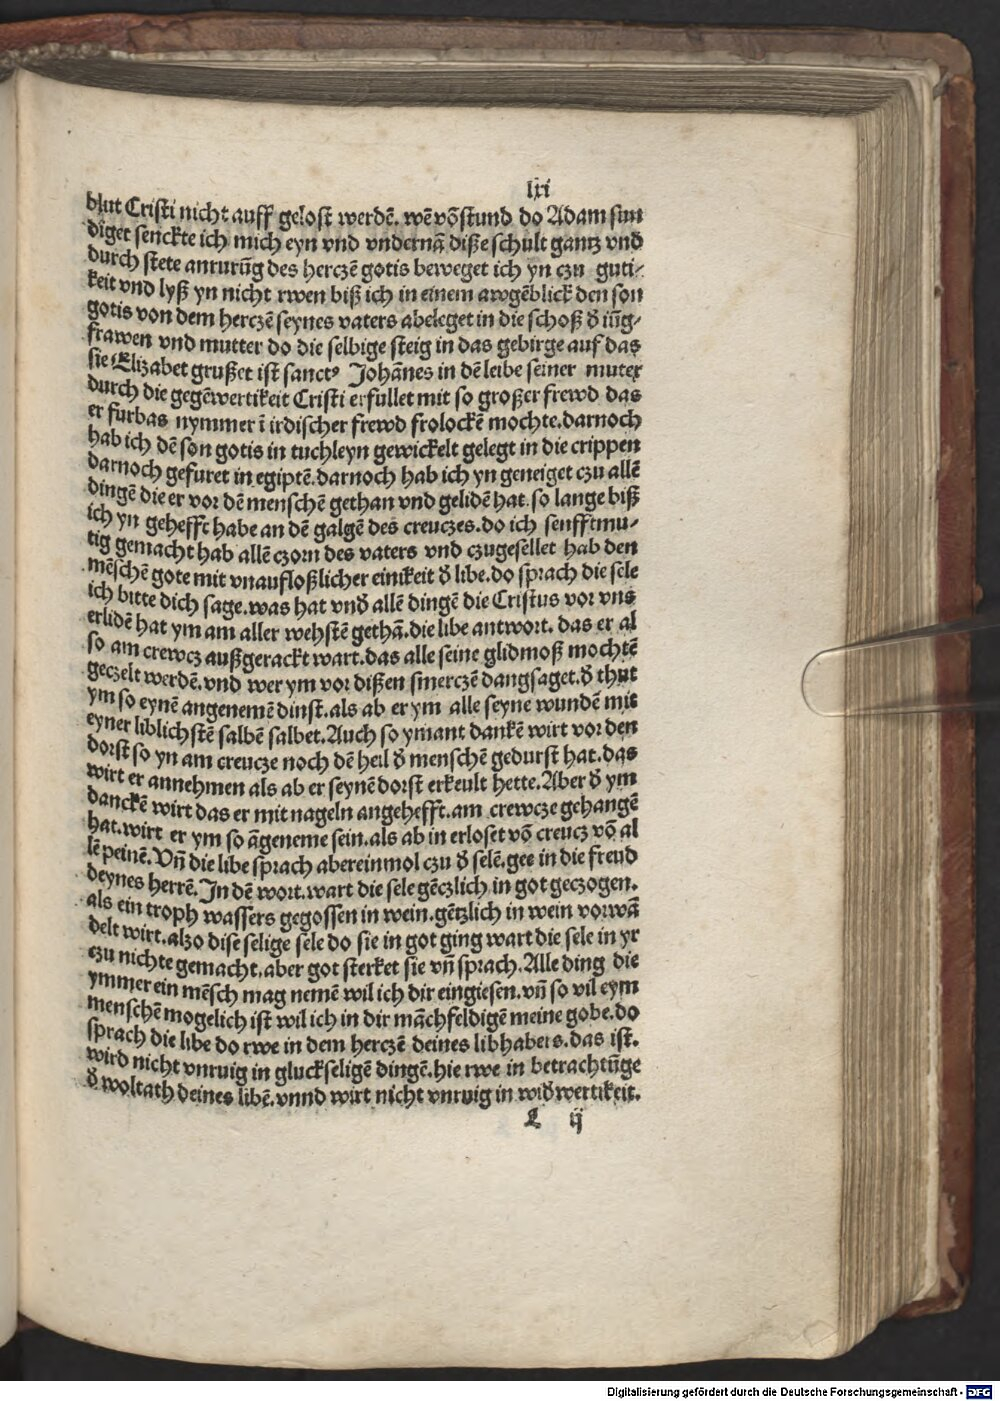 lxi
blut Cristi nicht auff gelost werdē. wē vō stund do Adam sun
diget senckte ich mich eyn vnd vndernā diße schult gantz vnd
durch stete anrurūg des herczē gotis beweget ich yn czu guti⸗
keit vnd lyß yn nicht rwen biß ich in einem awgēblick den son
gotis von dem herczē seynes vaters abeleget in die schoß d̄ iūg⸗
frawen vnd mutter do die selbige steig in das gebirge auf das
sie Elizabet grußet ist sanctꝰ Johānes in dē leibe seiner muter
durch die gegēwertikeit Cristi erfullet mit so großer frewd das
er furbas nymmer ī irdischer frewd frolockē mochte. darnoch
hab ich dē son gotis in tuchleyn gewickelt gelegt in die crippen
darnoch gefuret in egiptē. darnoch hab ich yn geneiget czu allē
dingē die er vor dē menschē gethan vnd gelidē hat. so lange biß
ich yn gehefft habe an dē galgē des creuczes. do ich senfftmu⸗
tig gemacht hab allē czorn des vaters vnd czugesellet hab den
mēschē gote mit vnaufloßlicher einikeit d̄ libe. do sprach die sele
ich bitte dich sage. was hat vnd̄ allē dingē die Cristus vor vns
erlidē hat ym am aller wehstē gethā. die libe antwort. das er al
so am crewcz außgerackt wart. das alle seine glidmoß mochtē
geczelt werdē. vnd wer ym vor dißen smerczē dangsaget. d̄ thut
ym so eynē angenemē dinst. als ab er ym alle seyne wundē mit
eyner liblichstē salbē salbet. Auch so ymant dankē wirt vor den
dorst so yn am creucze noch dē heil d̄ menschē gedurst hat. das
wirt er annehmen als ab er seynē dorst erkeult hette. Aber d̄ ym
danckē wirt das er mit nageln angehefft. am crewcze gehangē
hat. wirt er ym so āgeneme sein. als ab in erloset vō creucz vō al
lē peinē. Vn̄ die libe sprach abereinmol czu d̄ selē. gee in die freud
deynes herrē. Jn dē wort. wart die sele gēczlich in got geczogen.
als ein troph wassers gegossen in wein. gētzlich in wein vorwā
delt wirt. alzo dise selige sele do sie in got ging wart die sele in yr
czu nichte gemacht. aber got sterket sie vn̄ sprach. Alle ding die
ymmer ein mēsch mag nemē wil ich dir eingiesen. vn̄ so vil eym
menschē mogelich ist wil ich in dir māchfeldigē meine gobe. do
sprach die libe do rwe in dem herczē deines libhabers. das ist.
wird nicht vnruig in gluckseligē dingē. hie rwe in betrachtūge
d̄ woltath deines libē. vnnd wirt nicht vnruig in wid̄wertikeit.
L ij
Digitalisierung gefördert durch die Deutsche Forschungsgemeinschaft - DFG